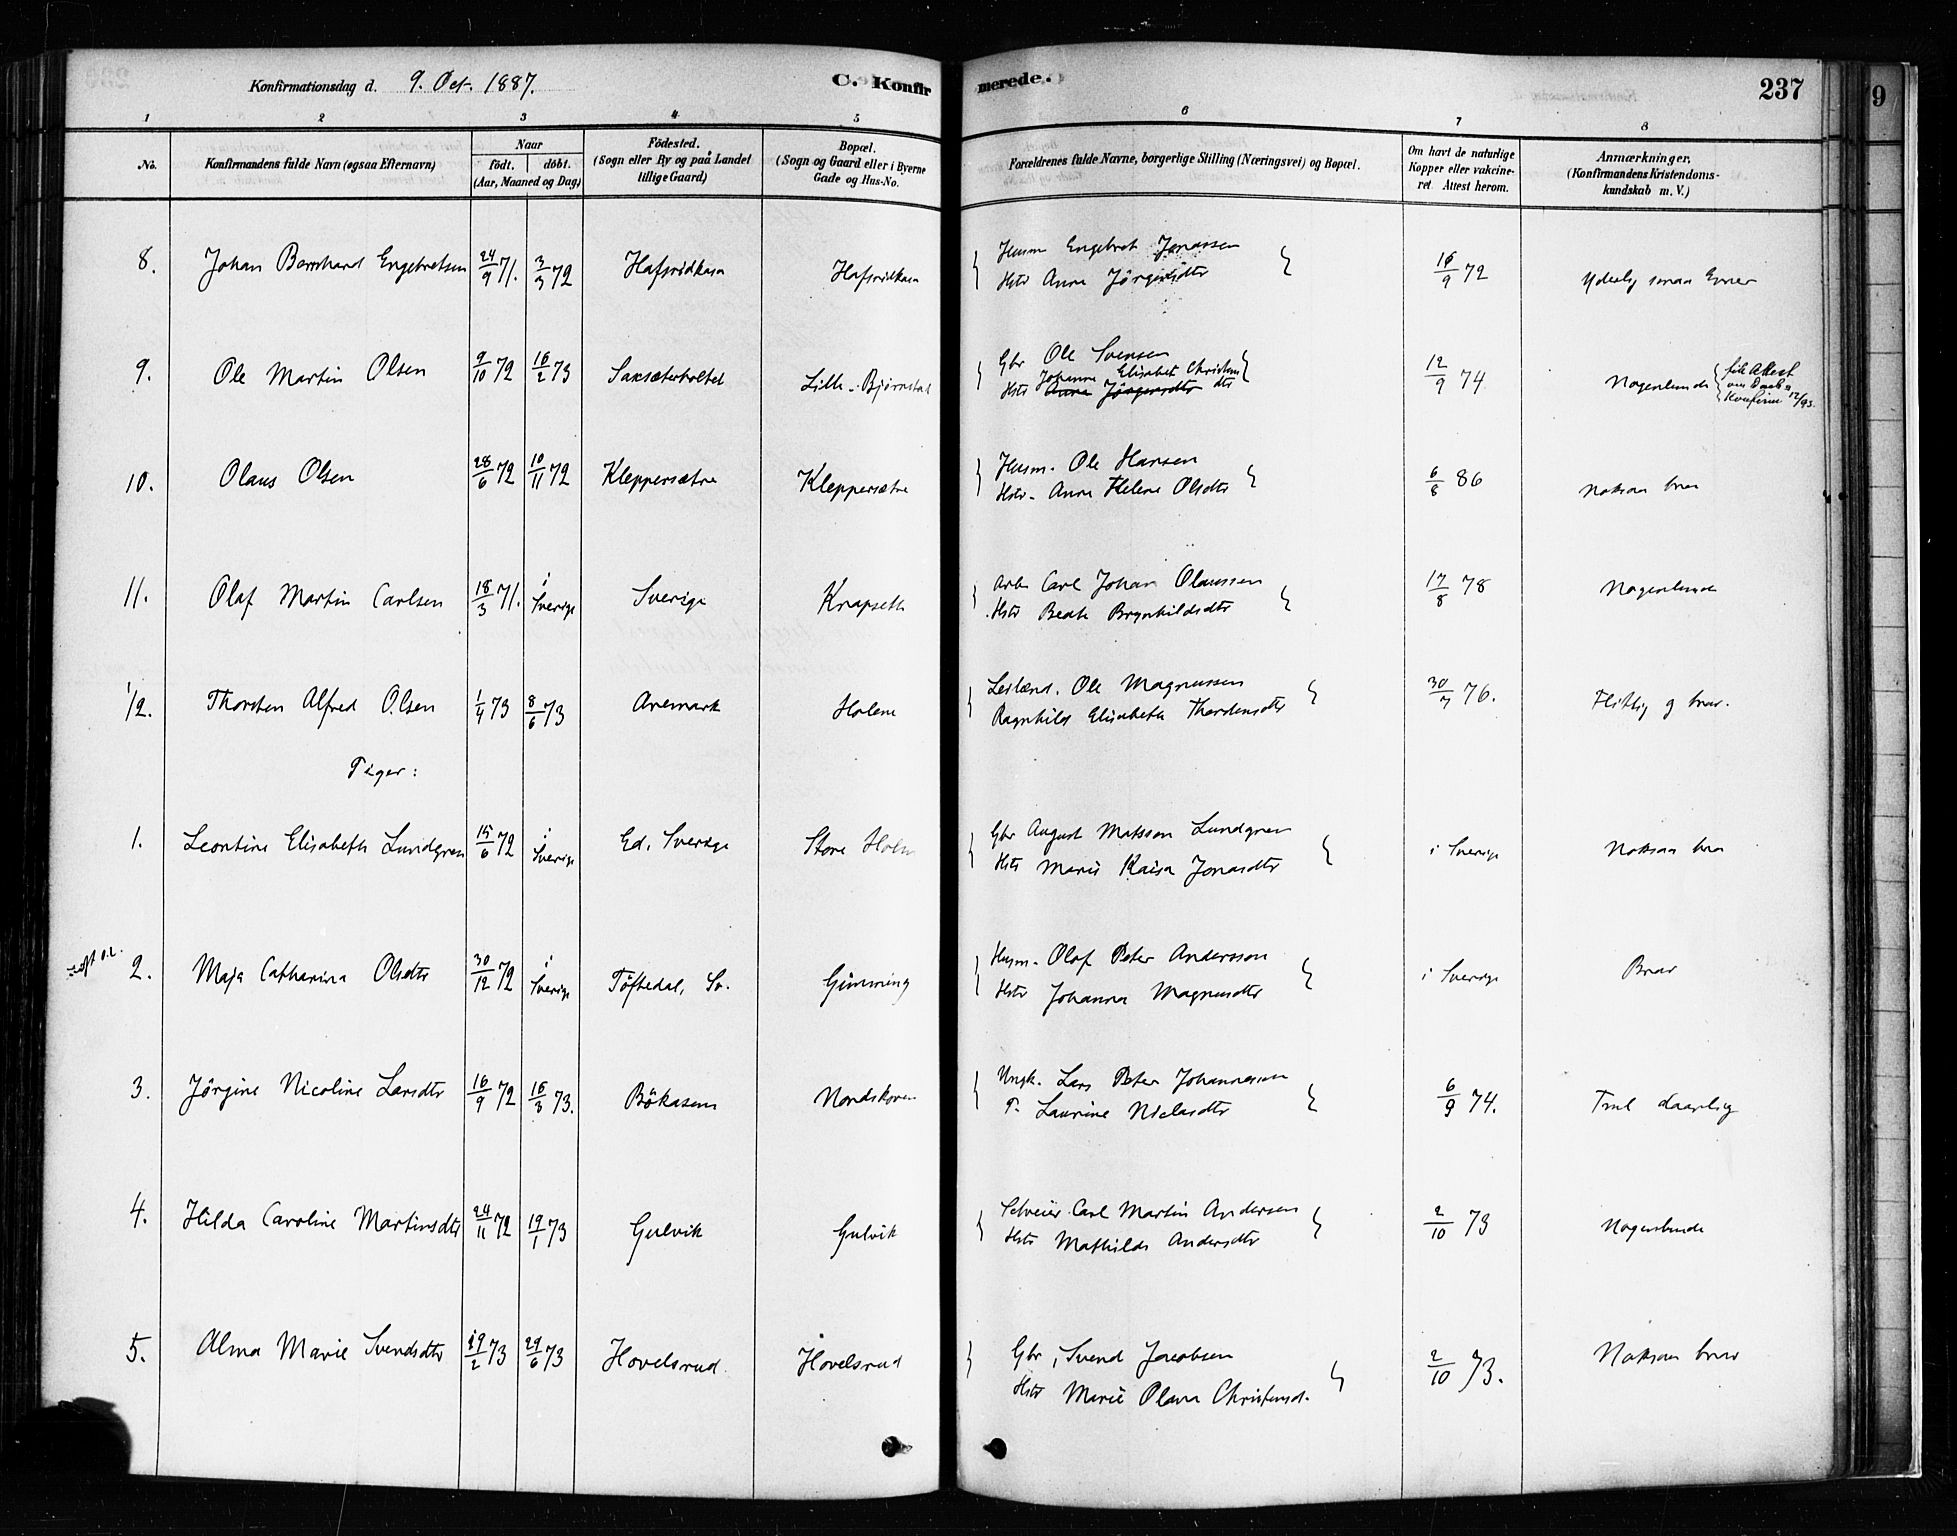 Konfirmationsdag d. 9. Oct. 1887.
C. Konfirmerede.
237
1 2 3 4 5 6 7 8
No.
Konfirmandens fulde Navn (ogsaa Efternavn)
Naar
født. døbt.
(Aar, Maaned og Dag)
Fødested.
(Sogn eller By og paa Landet
tillige Gaard)
Bopæl.
(Sogn og Gaard eller i Byerne
Gade og Hus-No.
Forældrenes fulde Navne, borgerlige Stilling (Næringsvei) og Bopæl.
Om havt de naturlige
Kopper eller vakcine-
ret Attest herom.
Anmærkninger.
(Konfirmandens Kristendoms-
kundskab m. V.)
8. Johan Bernhard Engebretsen 24/9 71. 3/3 72 Hafsrödkasa Hafsrödkasa
Husm Engebret Jonassen
Hstr Anna Jörgensdtr
16/9 72 Yderlig smaa Evner
9. Ole Martin Olsen 9/10 72 16/2 73 Saksæterholtet Lille-Bjørnstad
Gbr Ole Svensen
Johanne Elisabet Christens
Hstr Anne Jörgensdtr dtr
12/9 74 Nogenlunde
fik Attest
om Daab &
Konfirm 12/93.
10. Olaus Olsen 28/6 72 10/11 72 Kleppersætre Kleppersætre
Husm. Ole Hansen
Hstr. Anne Helene Olsdtr
6/8 86 Noksaa brav
11. Olaf Martin Carlsen 18/3 71. i Sverige Sverige Knapseth
Arb. Carl Johan Olaussen
Hstr Beate Brynhildsdtr
17/8 78 Nogenlunde
12. Thorsten Alfred Olsen 1/4 73 8/6 73 Aremark Holene
Leilænd. Ole Magnussen
Ragnhild Elisabeth Thordensdtr
30/7 76. Flittig og brav.
Piger:
1. Leontine Elisabeth Lundgren 15/6 72 i Sverige Ed, Sverige Store Holm
Gbr August Matsson Lundgren
Hstr Marie Kaisa Jonasdtr
i Sverige Noksaa brav
2. Maja Catharina Olsdtr 30/12 72 i Sverige Töftedal, Sv. Gimming
Husm. Olof Peter Andersson
Hstr Johanna Magnusdtr
i Sverige Brav
3. Jörgine Nicoline Larsdtr 16/9 72 16/3 73. Bökasen Nordskoven
Ungk. Lars Peter Johannessen
P. Laurine Niclasdtr
6/9 74. Tml. daarlig
4. Hilda Caroline Martinsdtr 24/11 72 19/1 73 Gulvik Gulvik
Selveier Carl Martin Andersen
Hstr Mathilde Andersdtr
2/10 73 Nogenlunde
5. Alma Marie Svendsdtr 19/2 73 29/6 73 Hovelsrud Hovelsrud
Gbr, Svend Jacobsen
Hstr Marie Olava Christensd.
2/10 73. Noksaa brav